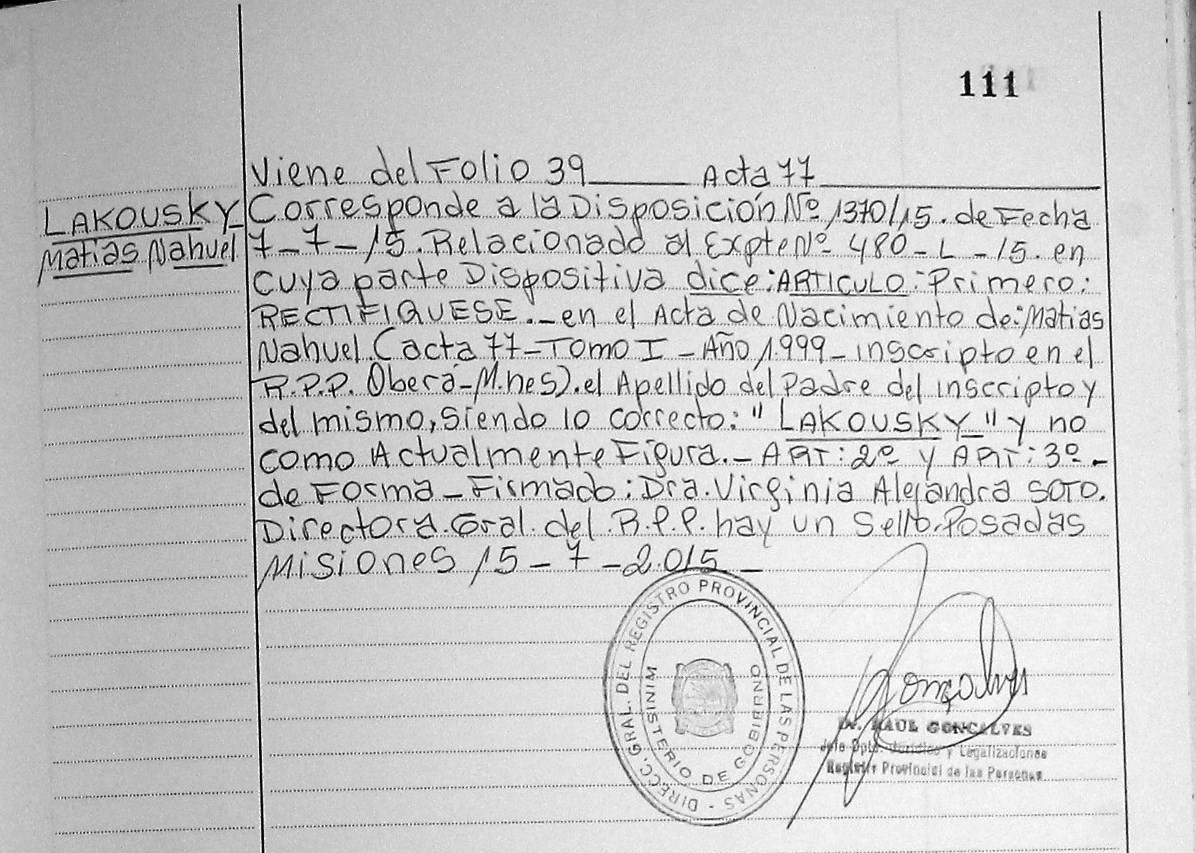 111
Viene del Folio 39 ______ Acta 77 ______
LAKOUSKY
Matias Nahuel
Corresponde a la Disposición Nº 1370/15. de Fecha
7-7-15. Relacionado al Expte Nº 480-L-15. en
cuya parte Dispositiva dice: ARTICULO: Primero:
RECTIFIQUESE._ en el Acta de Nacimiento de: Matias
Nahuel (acta 77-Tomo I - Año 1.999- inscripto en el
R.P.P. Oberá-M.nes). el Apellido del Padre del inscripto y
del mismo, siendo lo correcto: "LAKOUSKY" y no
como Actualmente Figura._ ART: 2º y ART: 3º-
de Forma - Firmado: Dra. Virginia Alejandra SOTO.
Directora. Gral. del. R.P.P. hay un Sello. Posadas
Misiones 15-7-2.015_
DIRECC. GRAL. DEL REGISTRO PROVINCIAL DE LAS PERSONAS -
MINISTERIO DE GOBIERNO
Gonçalves
Dr. RAUL GONCALVES
Jefe Dpto. Jurídico y Legalizaciones
Registro Provincial de las Personas